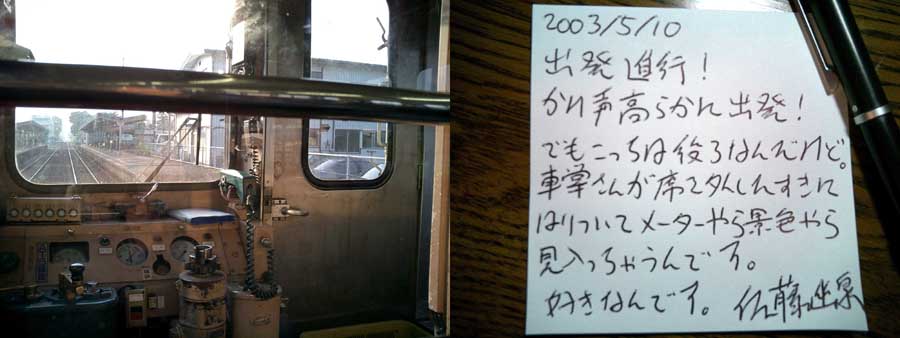 2003/5/10
出発進行！
かけ声高らかに出発！
でもこっちは後ろなんだけど。
車掌さんが席を外したすきに
はりついてメーターやら景色やら
見入っちゃうんです。
好きなんです。 佐藤